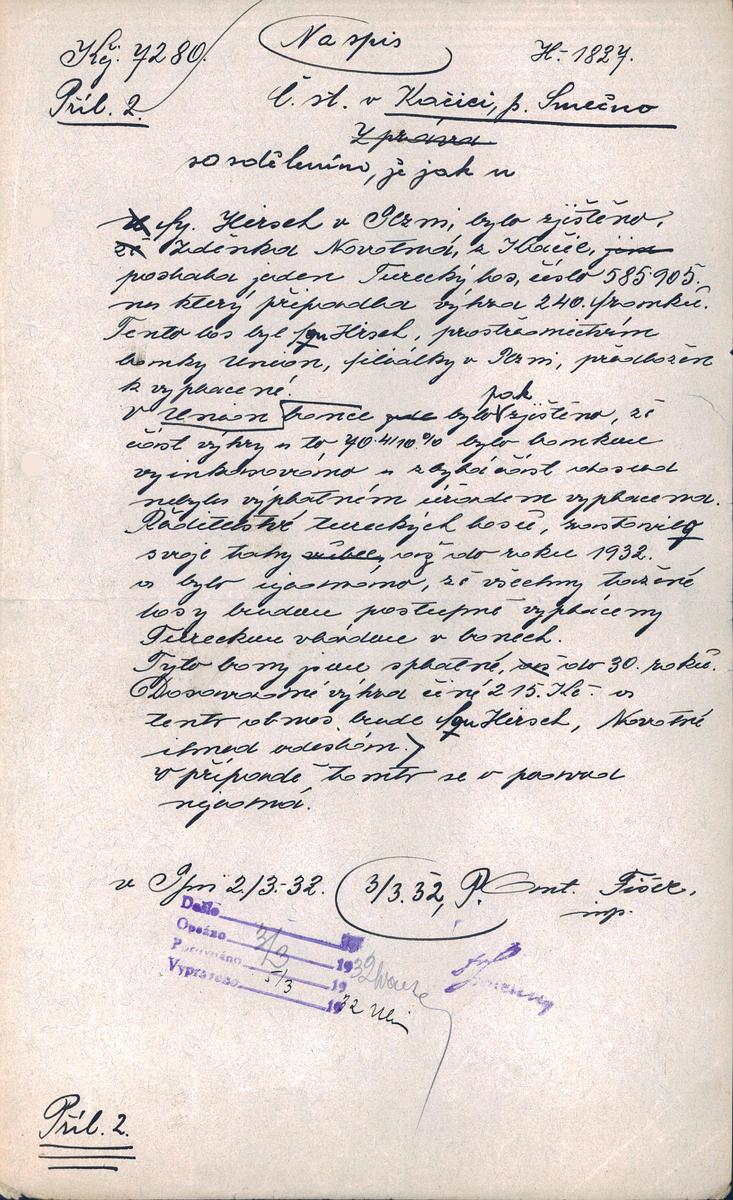 Kř. 7280.
Na spis
H-1827.
Příl. 2.
Č. st. v Kačici, p. Smečno
Zpráva
se sdělením, že jak u
u fy. Hirsch v Plzni, bylo zjištěno,
že Zdeňka Novotná, z Kačic,
poslala jeden Turecký los, číslo 585905.
na který připadla výhra 240. franků.
Tento los byl fou Hirsch, prostřednictvím
banky Union, filiálky v Plzni, předložen
k vyplacení.
v Union bance bylo pak zjištěno, že
část výhry a to bylo bankou
vyinkasováno a zbylá část dosud
nebyla výplatním úřadem vyplacena.
Ředitelství tureckých losů, zastavilo
svoje tahy vůbec, až do roku 1932.
a bylo ujednáno, že všechny tažené
losy budou postupně vypláceny
Tureckou vládou v bonech.
Tyto bony jsou splatné, až do 30. roků.
Dosavadní výhra činí 215. Kč. a
tento obnos bude fou Hirsch, Novotné
ihned odeslán.
v případě tomto se o podvod
nejedná.
v Plzni 2/3.-32.
3/3.32, P.
Fišer,
mp.
Došlo
Opsáno 3/3 19
Porovnáno 5/3 1932
Vypraveno 1932
Příl. 2.